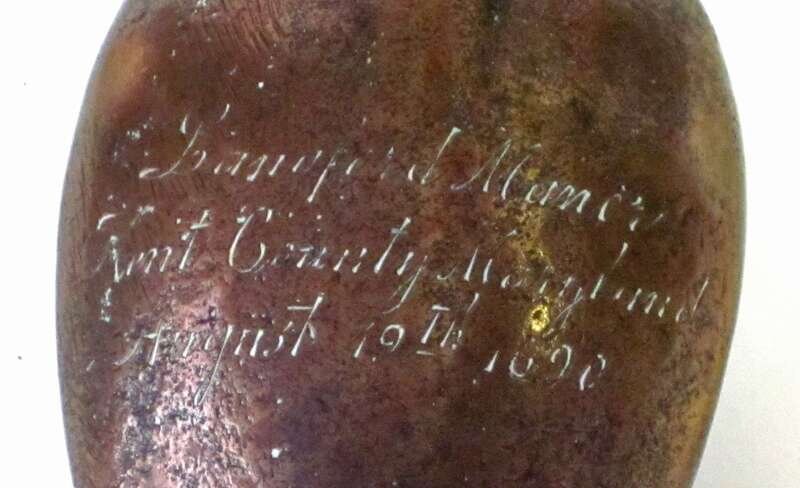 Langford Manor
Kent County Maryland
August 19th 1690